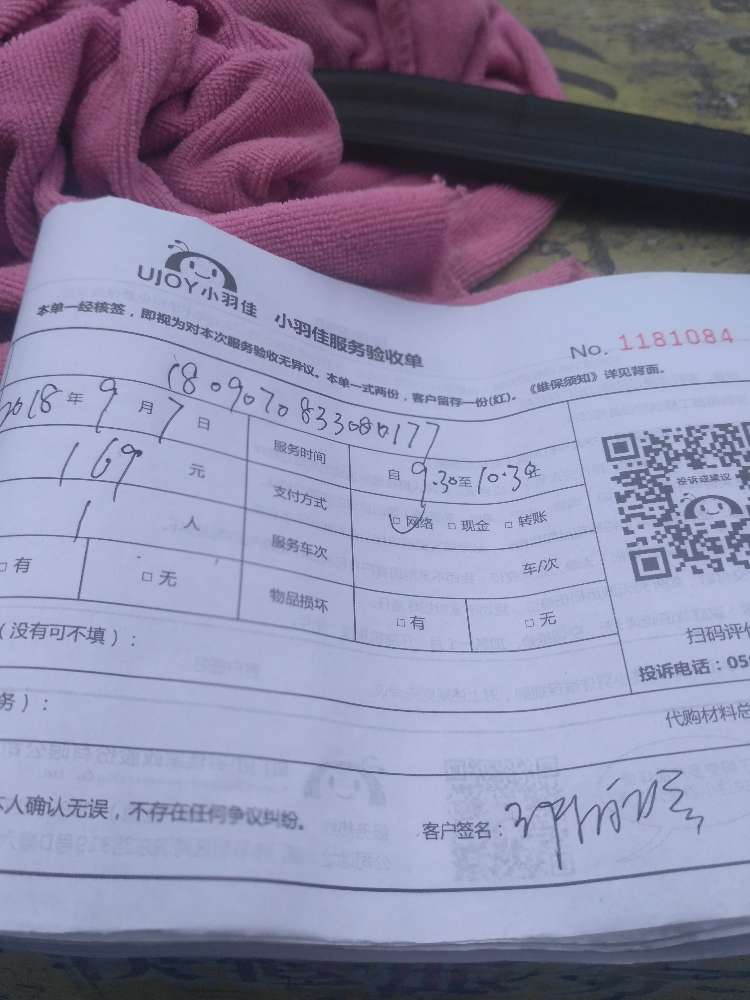 UJOY小羽佳 小羽佳服务验收单
No. 1181084
本单一经核签，即视为对本次服务验收无异议。本单一式两份，客户留存一份(红)。《维保须知》详见背面。
1809070833080177
2018年9月7日 服务时间 自9.30至10.30
169元 支付方式 □网络 □现金 □转账
1人 服务车次 车/次
□有 □无 物品损坏 □有 □无
投诉或建议
扫码评价
（没有可不填）：
投诉电话：059
务）：
代购材料总
本人确认无误，不存在任何争议纠纷。
客户签名：